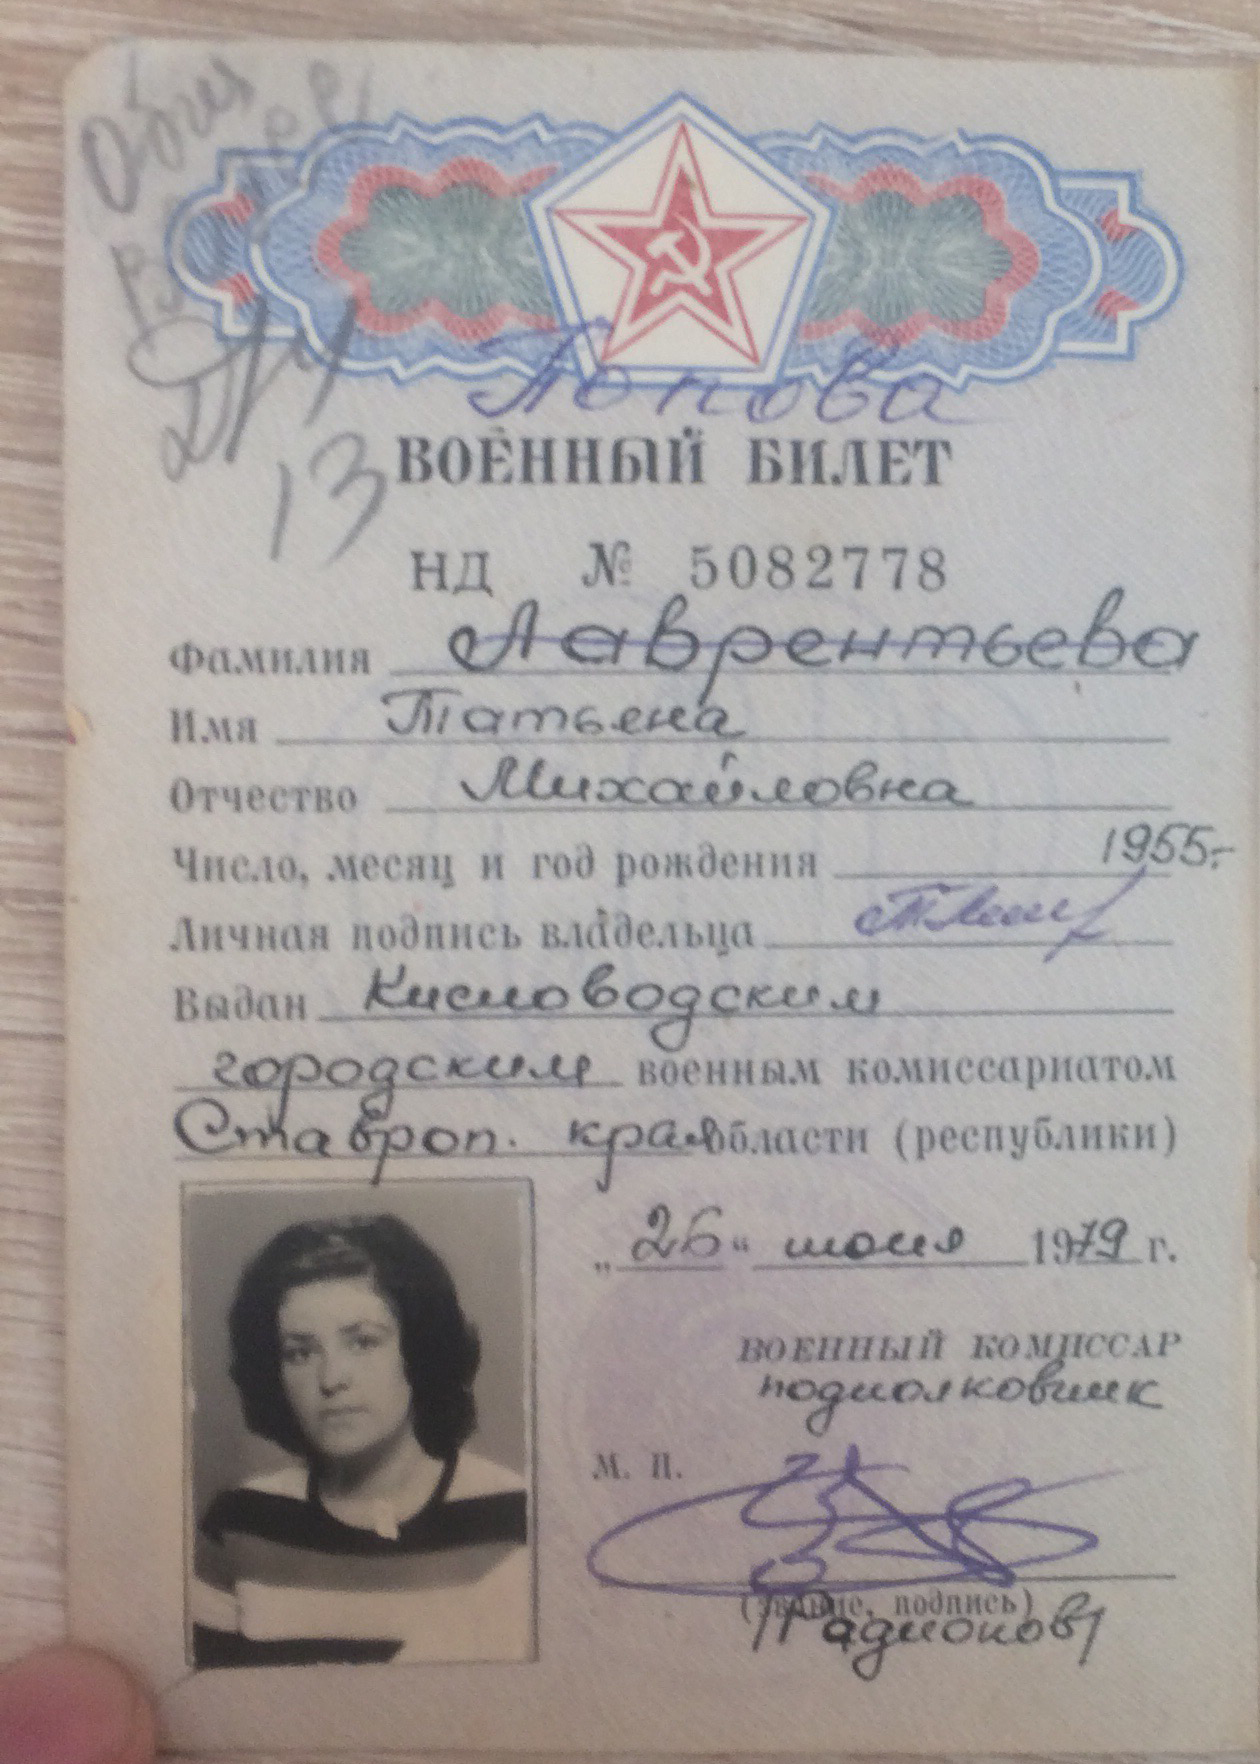 Общ
ДМУ
13
Попова
ВОЕННЫЙ БИЛЕТ
НД № 5082778
Фамилия Лаврентьева
Имя Татьяна
Отчество Михайловна
Число, месяц и год рождения 1955.-
Личная подпись владельца
Выдан Кисловодским
городским военным комиссариатом
Ставроп. края области (республики)
„26“ июня 1979 г.
ВОЕННЫЙ КОМИССАР
подполковник
М. П.
(звание, подпись)
/Радионов/